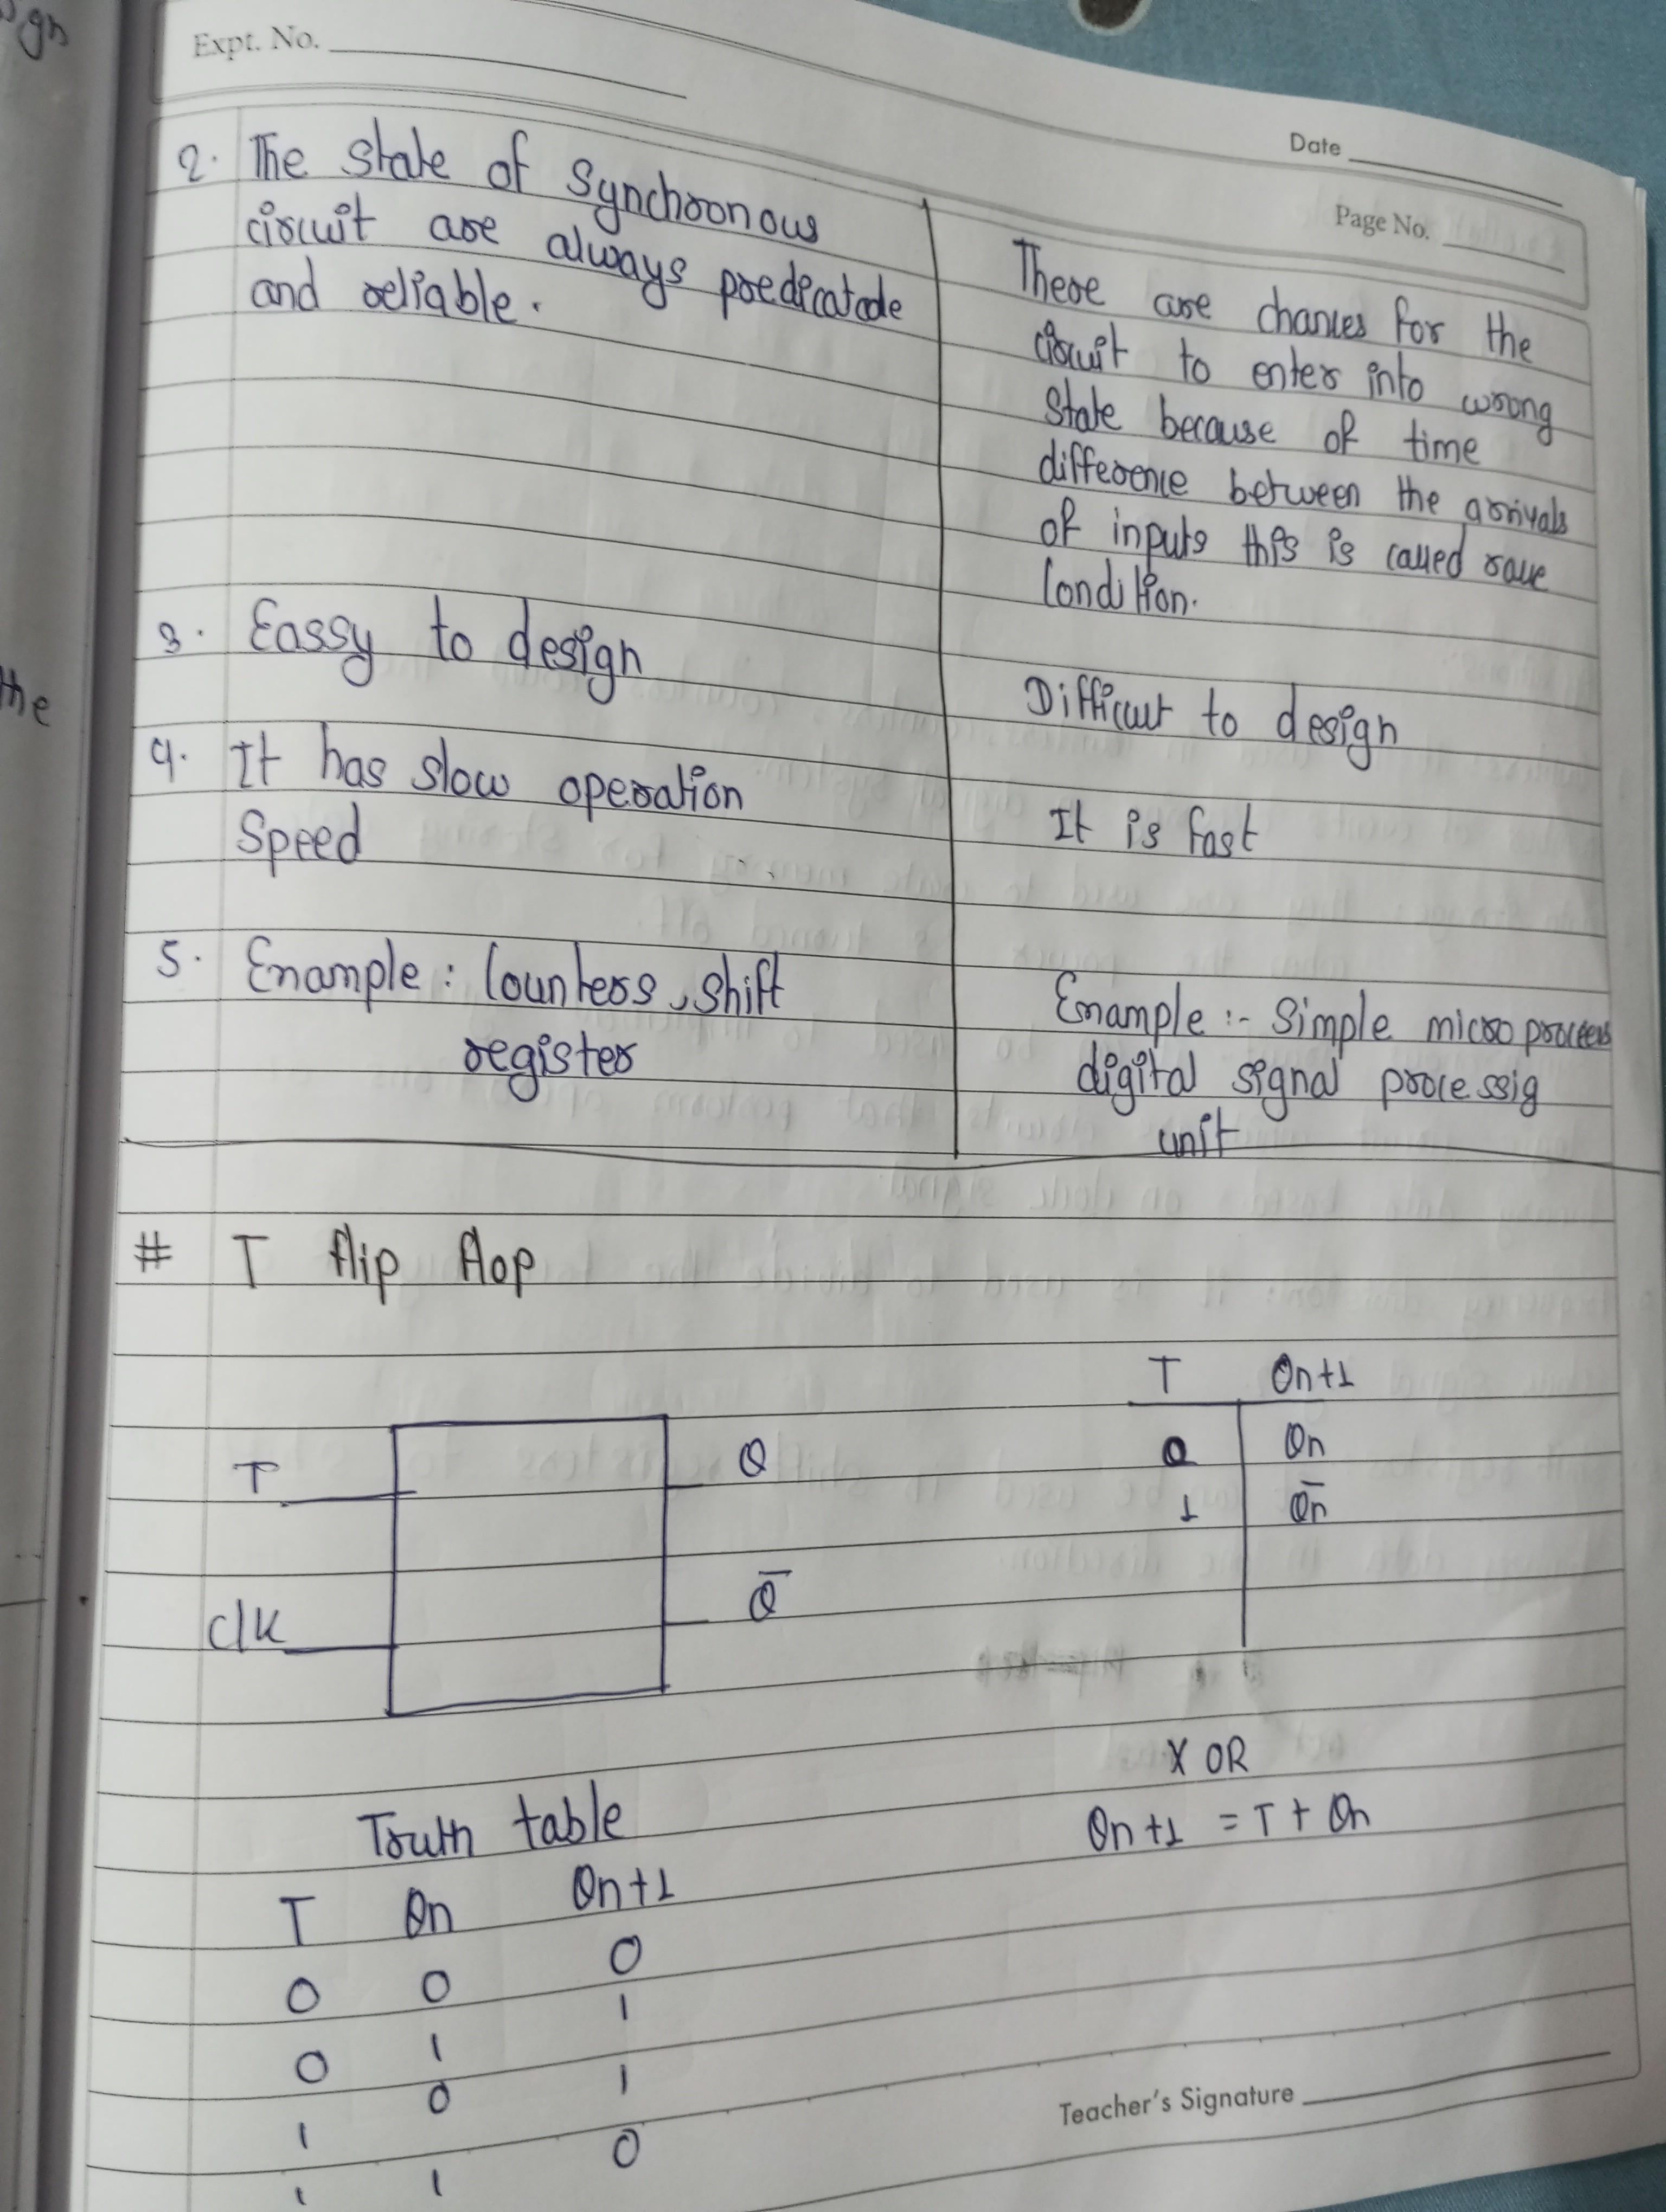 gn
the
Expt. No.
Date
Page No.
2. The state of Synchronous
circuit are always predicatade
and reliable.
There are chances for the
circuit to enter into wrong
State because of time
difference between the arrivals
of inputs this is called race
Condition.
3. Eassy to design
Difficult to design
4. It has slow operation
Speed
It is fast
5. Example : Counters, shift
register
Example :- Simple micro process
digital signal processig
unit
# T flip flop
T Q
Clk Q̄
T Qn+1
0 Qn
1 Q̄n
Truth table
T Qn Qn+1
0 0 0
0 1 1
1 0 1
1 1 0
X OR
Qn+1 = T + Qn
Teacher's Signature